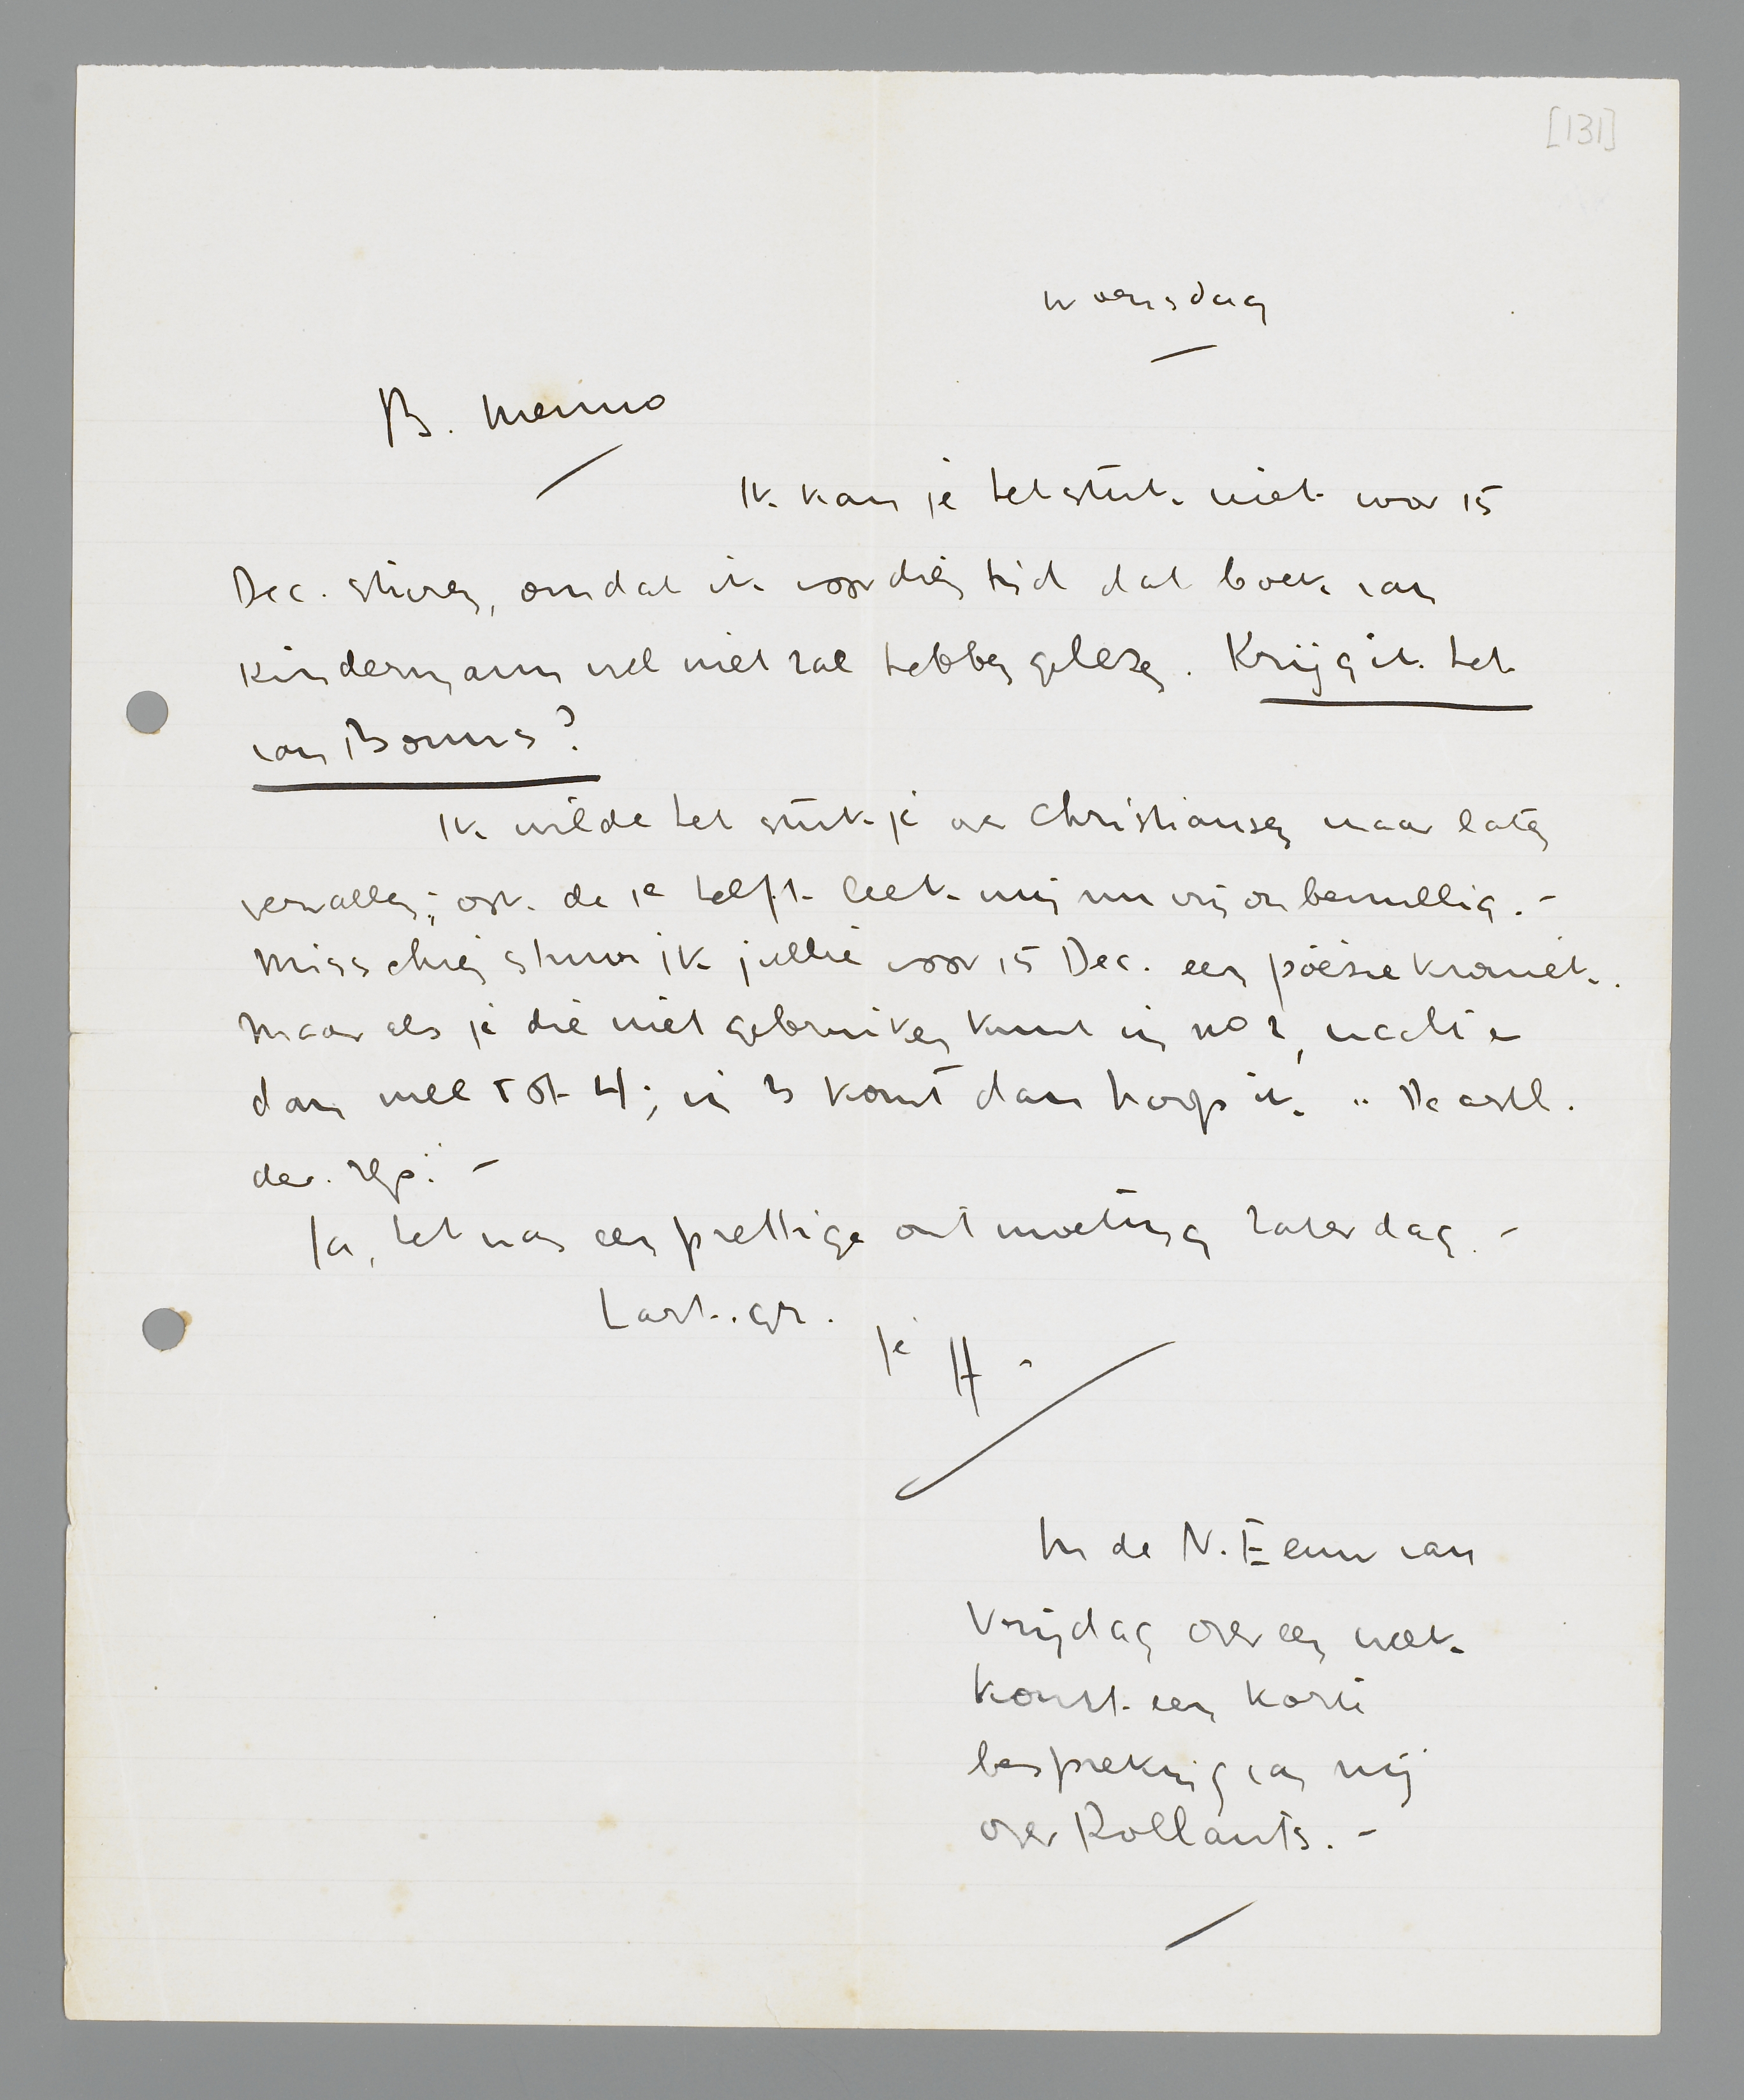 [131]
woensdag
B. Menno
Ik kan je het stuk niet voor 15
Dec. sturen, omdat ik voor dien tijd dat boek van
Kindermann wel niet zal hebben gelezen. Krijg ik het
van Bouws?
Ik wilde het stukje over Christiansen maar laten
vervallen; ook de 1e helft leek mij nu vrij onbenullig. -
Misschien stuur ik jullie voor 15 Dec. een poëzie kroniek.
Maar als je die niet gebruiken kunt in no 2, wacht er
dan mee tot 4; in 3 komt dan hoop ik "De aesth.
der rep." -
Ja, het was een prettige ontmoeting Zaterdag. -
Hart. gr.
je H.
In de N. Eeuw van
Vrijdag over een week
komt een korte
bespreking van mij
over Rollants. -